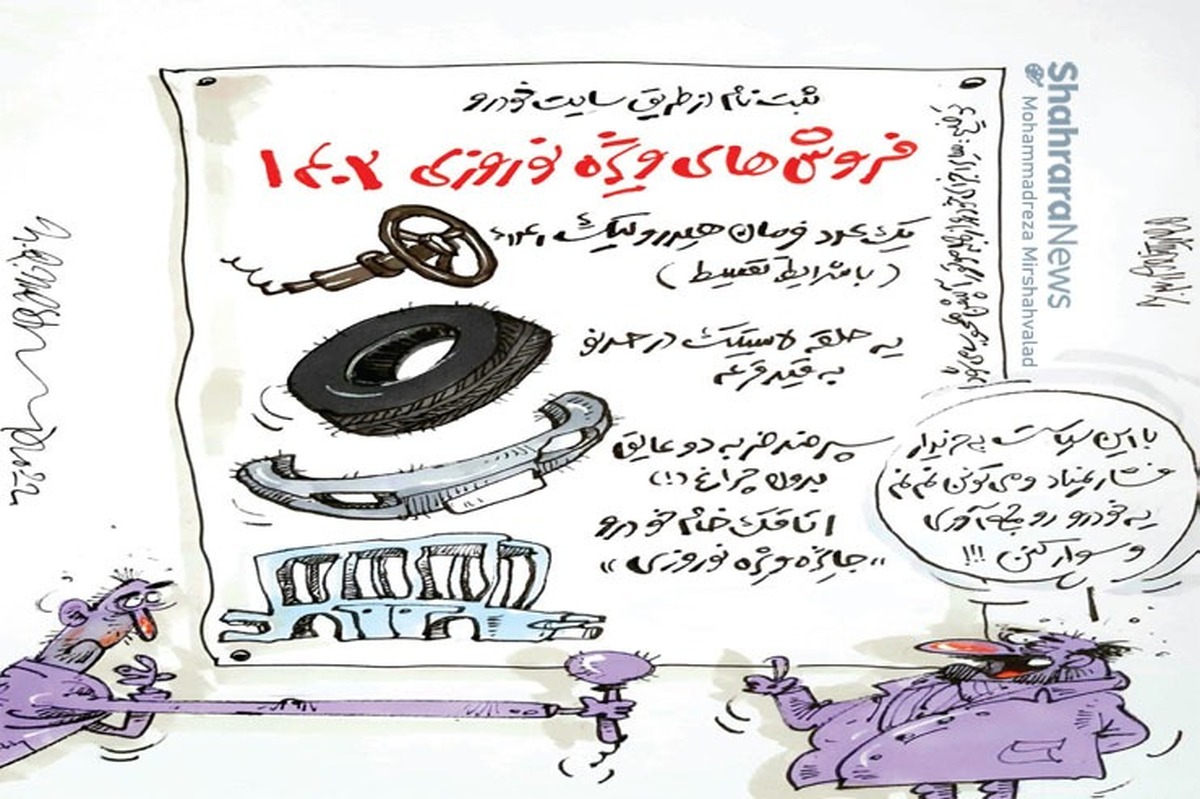 ثبت نام از طریق سایت خودرو
فروش‌های ویژه نوروزی ۱۴۰۲
یک عدد فرمان هیدرولیک
(با شرایط تقسیط)
یه حلقه لاستیک درحد نو
به قید قرعه
سپر ضد ضربه دو عایق
بدون چراغ (!)
اتاقک خام خودرو
«جایزه ویژه نوروزی»
با این سیاست به خریدار
فشار نمیاد و می‌تونن نم نم
یه خودرو رو جمع آوری
و سوار کنن !!!
ShahraraNews
Mohammadreza Mirshahvalad